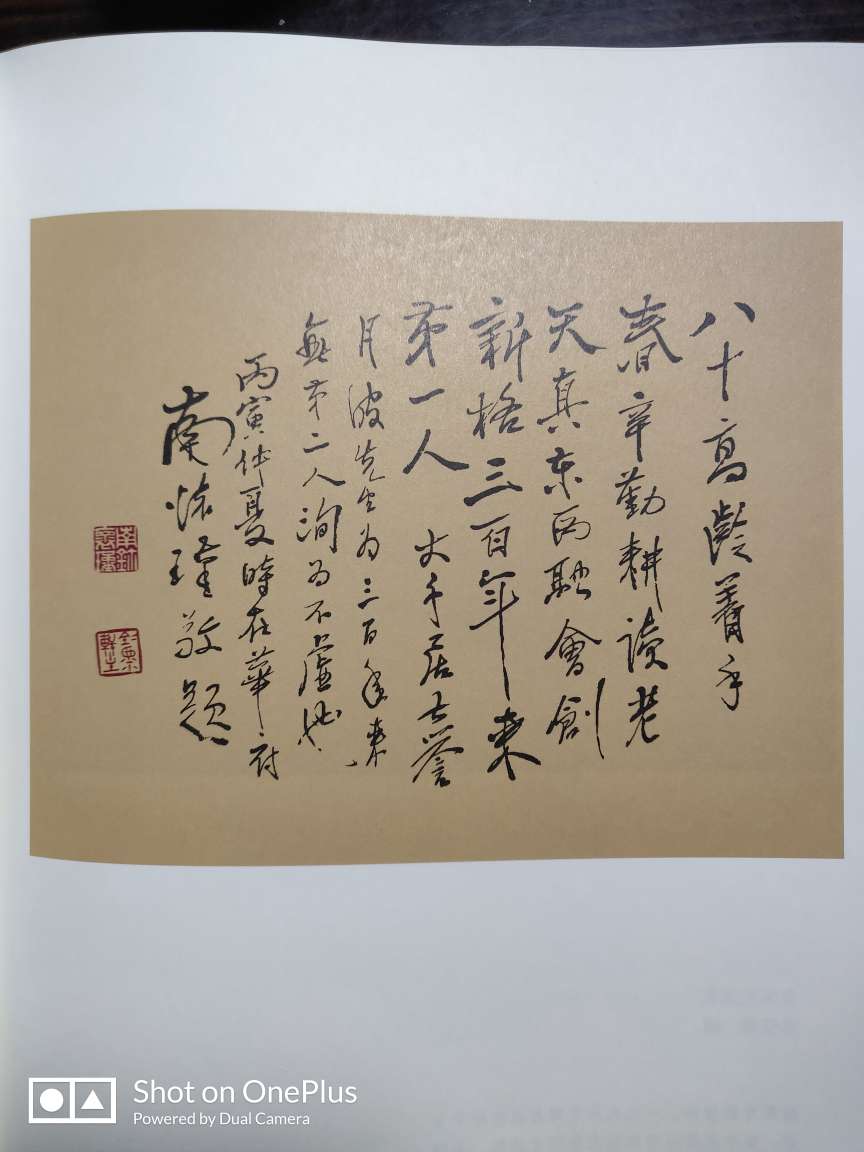 八十高齡著手
春辛勤耕讀老
天真東西融會創
新格三百年來
第一人 大千居士譽
月波先生為三百年來
無第二人洵為不虛也
丙寅仲夏時在華府
南懷瑾敬題
Shot on OnePlus
Powered by Dual Camera